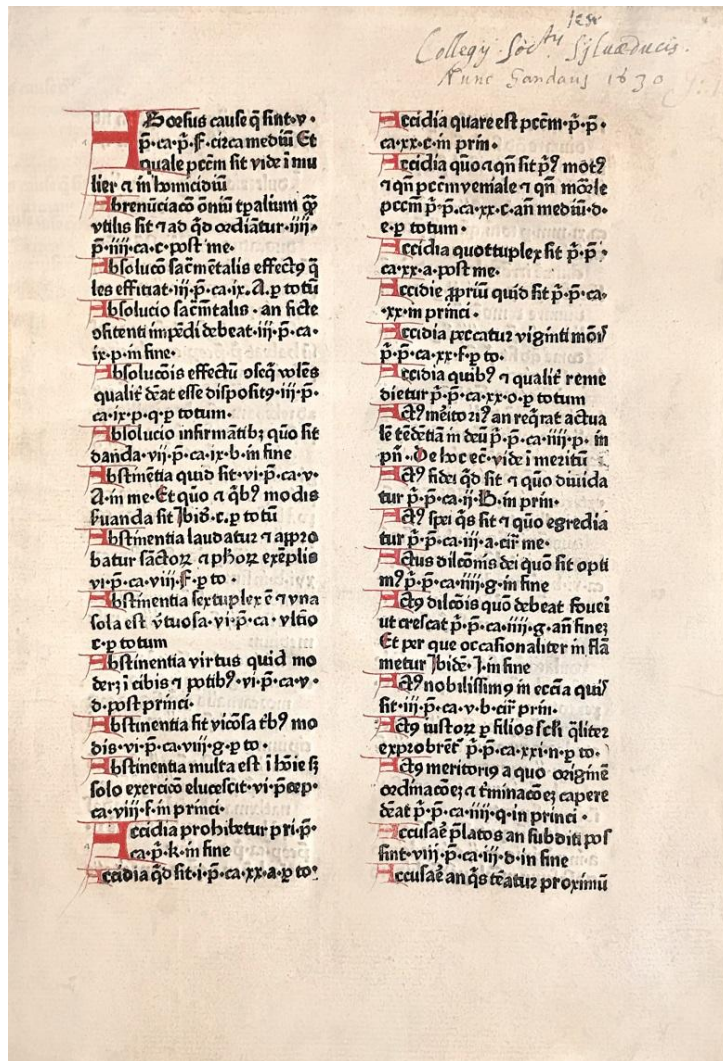 Collegij Soctis Sylvæducis.
Nunc Gandavi 1630
Aborsus cause q̄ sint·v·
p̄·ca·p̄·F·circa mediū Et
quale pccm̄ sit vide ī mu
lier ⁊ in homicidiū
Abrenūciacō oniū tꝑalium qꝫ
vtilis sit ⁊ ad qd̄ ordiātur·iiij·
p̄·iiij·ca·c·post me·
Absolucō sac̄mētalis effectꝰ q̄
les effitiat·iij·p̄·ca·ix·A·ꝑ totū
Absolucio sac̄mētalis·an ficte
ofitenti impēdi debeat·iij·p̄·ca·
ix·p·in fine·
Absolucōis effectū oseq̄ volēs
qualit̄ dēat esse dispositꝰ·iij·p̄·
ca·ix·p·q·ꝑ totum·
Absolucio infirmātibꝫ quō sit
danda·vij·p̄·ca·ix·b·in fine
Abstinētia quid sit·vi·p̄·ca·v·
A·in me·Et quo ⁊ q̄bꝰ modis
s̄uanda sit Ibid̄·c·ꝑ totū
Abstinentia laudatur ⁊ appro
batur sāctoꝝ ⁊ ph̄oꝝ exēplis
vi·p̄·ca·viij·F·ꝑ to·
Abstinentia sextuplex ē ⁊ vna
sola est v̄tuosa·vi·p̄·ca·vltīo
c·ꝑ totum
Abstinentia virtus quid mo
derꝫ ī cibis ⁊ potibꝰ·vi·p̄·ca·v·
d·post princi·
Abstinentia fit vicōsa t̄bꝰ mo
dis·vi·p̄·ca·viij·g·ꝑ to·
Abstinentia multa est ī hoīe sꝫ
solo exercicō elucescit·vi·p̄cep·
ca·viij·f·in princi·
Accidia prohibetur pri·p̄·
ca·p̄·k·in fine
Accidia qd̄ sit·i·p̄·ca·xx·a·ꝑ to·
Accidia quare est pccm̄·p̄·p̄·
ca·xx·c·in prin·
Accidia quō ⁊ qn̄ sit p̄ꝰ motꝰ
⁊ qn̄ pccm̄ veniale ⁊ qn̄ mōrle
pccm̄ p̄·p̄·ca·xx·c·an̄ mediū·d·
e·ꝑ totum·
Accidia quottuplex sit p̄·p̄·
ca·xx·a·post me·
Accidie ꝓpriū quid sit p̄·p̄·ca·
xx·in princi·
Accidia peccatur viginti mōis
p̄·p̄·ca·xx·f·ꝑ to·
Accidia quibꝰ ⁊ qualit̄ reme
dietur p̄·p̄·ca·xx·o·ꝑ totum
Actꝰ mēitoriꝰ an reqrat actua
lē tēdētiā in deū p̄·p̄·ca·iiij·p·in
pn̄·De hoc ec̄·vide ī meritū
Actꝰ fidei qd̄ sit ⁊ quō diuida
tur p̄·p̄·ca·ij·B·in prin·
Actꝰ spei q̄s sit ⁊ quō egredia
tur p̄·p̄·ca·iij·a·cir̄ me·
Actus dilcōnis dei quō sit opti
mꝰ p̄·p̄·ca·iiij·g·in fine
Actꝰ dilcōis quō debeat foueri
ut crescat p̄·p̄·ca·iiij·g·an̄ fineꝫ
Et per que occasionaliter in flā
metur Ibidē·I·in fine
Actꝰ nobilissimꝰ in eccīa quis
sit·iij·p̄·ca·v·b·cir̄ prin·
Actꝰ iustoꝝ ꝑ filios scl̄i q̄liter
exprobrēt p̄·p̄·ca·xxi·n·ꝑ to·
Actꝰ meritoriꝰ a quo originē
ordinacōeꝫ ⁊ t̄minacōeꝫ capere
dēat p̄·p̄·ca·iiij·q·in princi·
Accusar̄e p̄latos an subditi pos
sint·viij·p̄·ca·iij·d·in fine
Accusar̄e an q̄s tēatur proximū